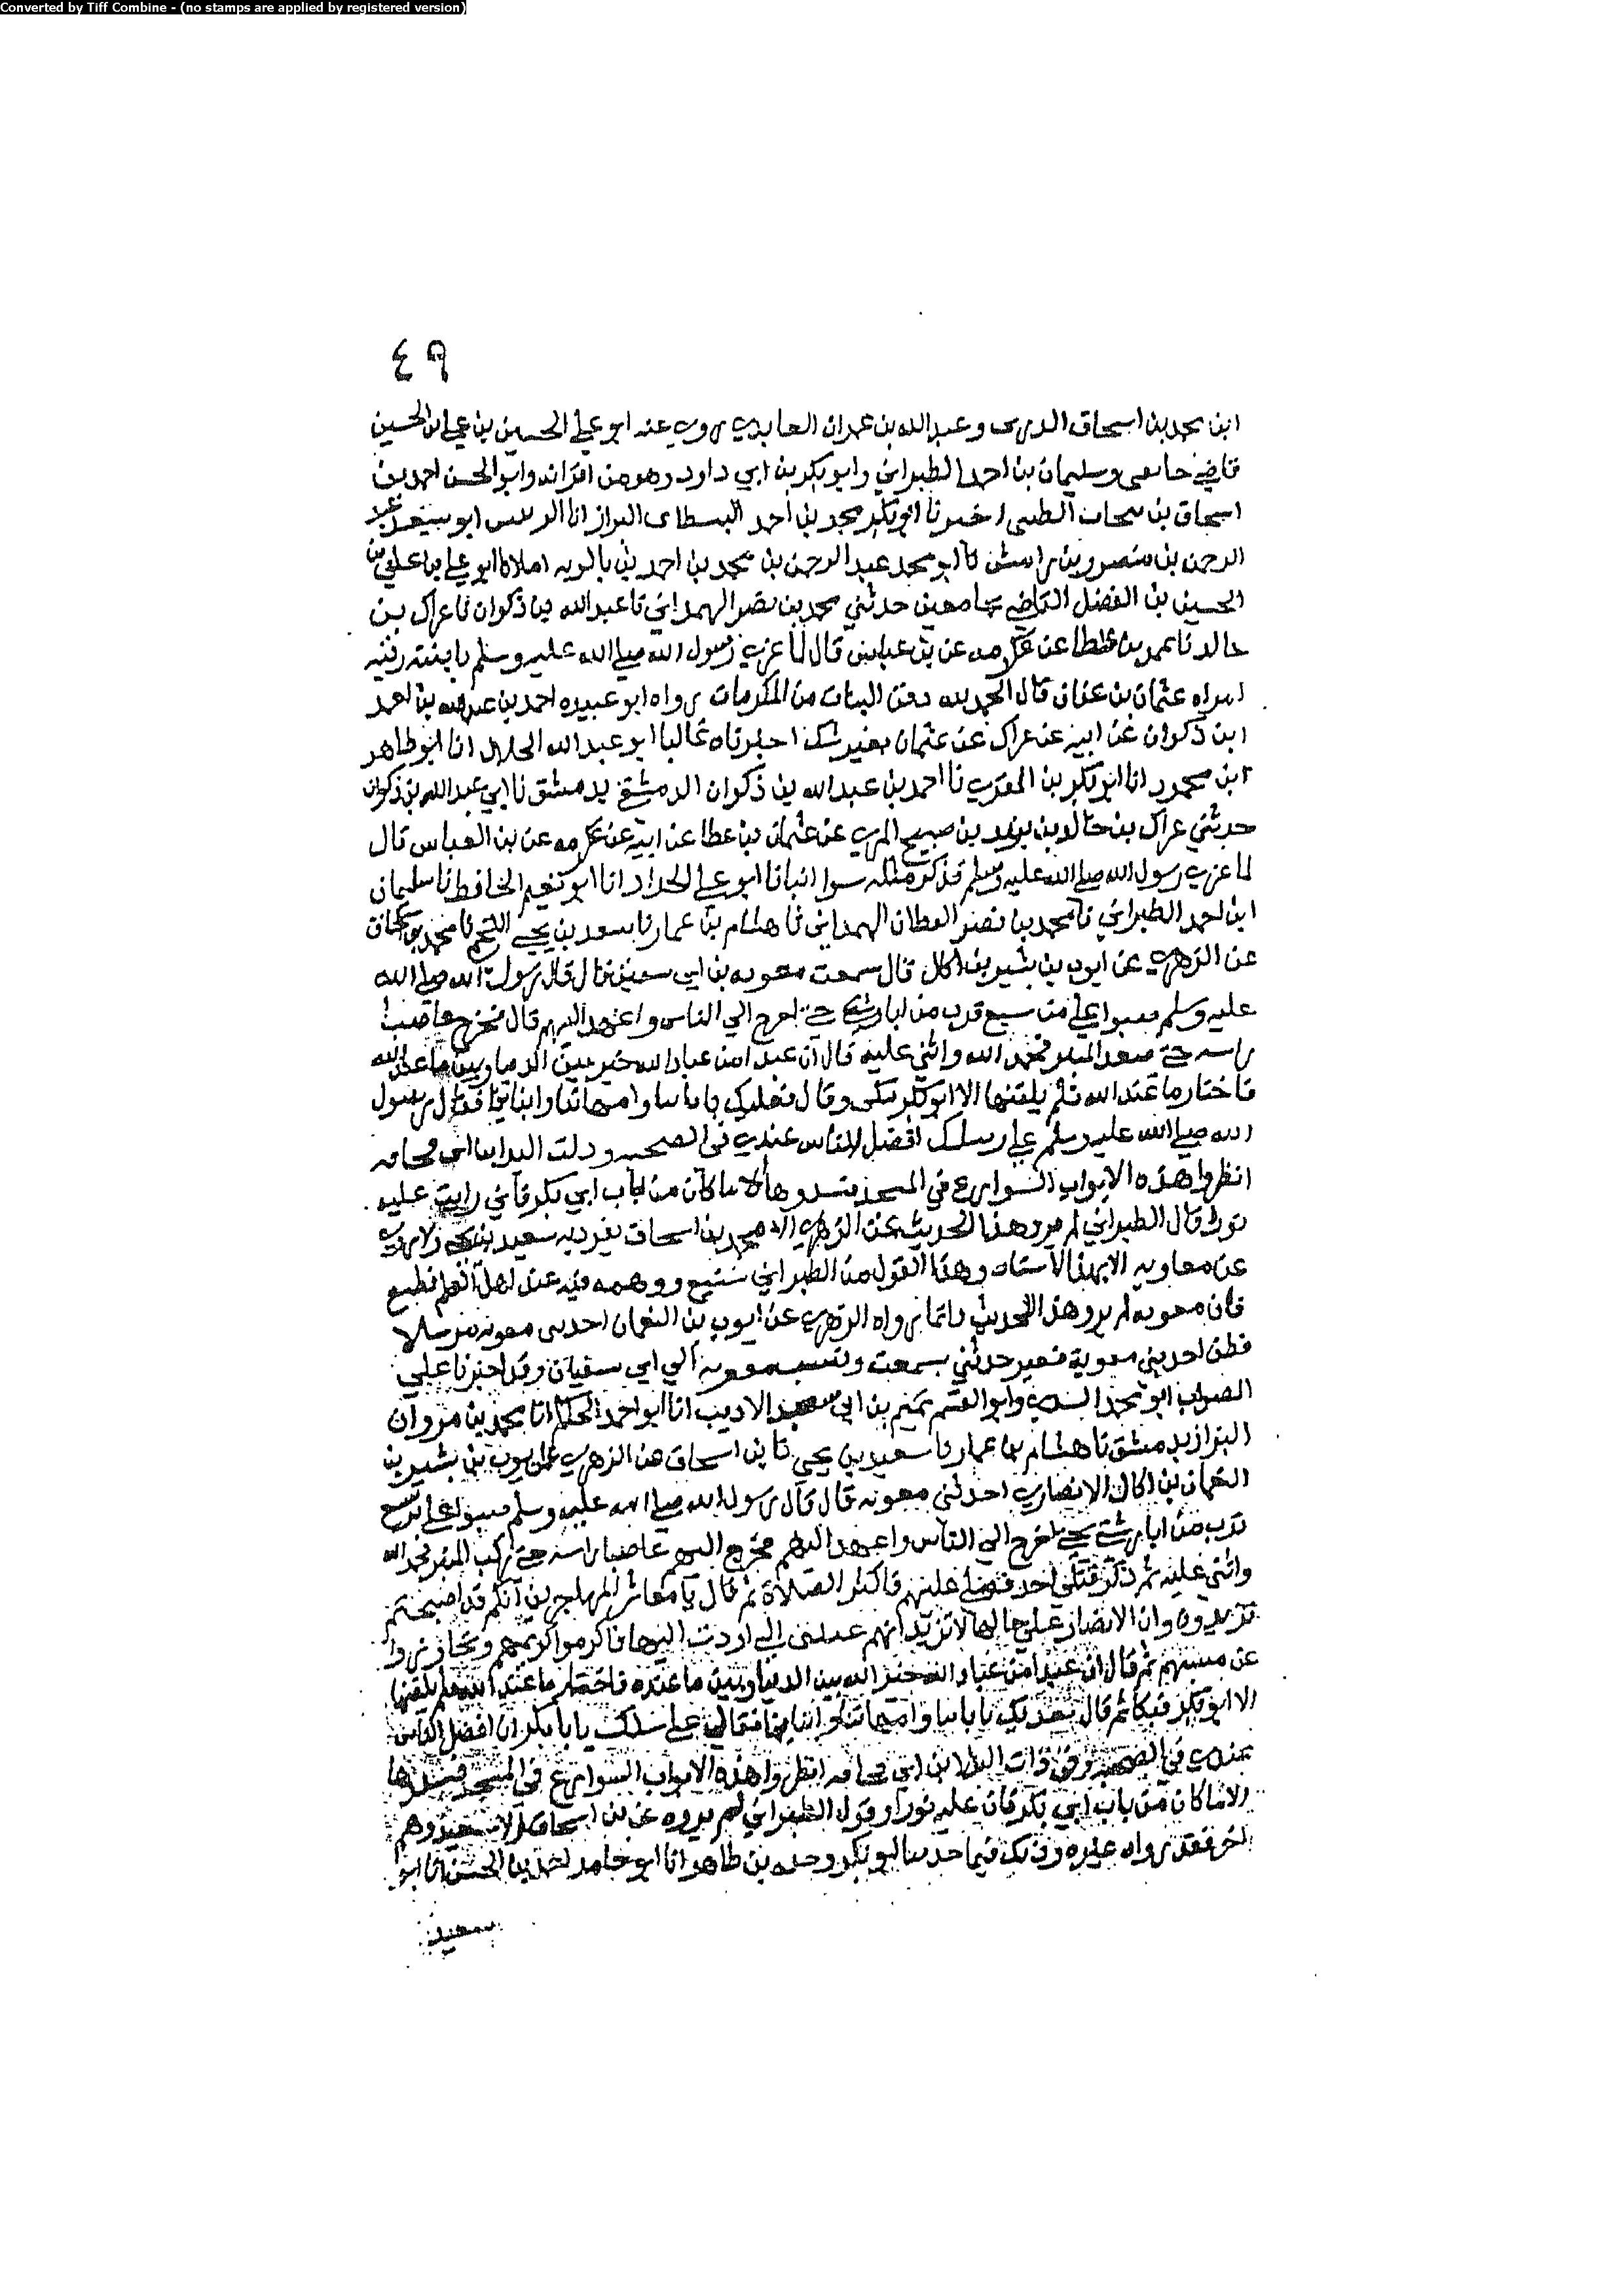 Converted by Tiff Combine - (no stamps are applied by registered version)
٤٩
ابن محمد بن اسحاق وعبد الله بن عمران العابدي روى عنه ابو علي الحسين بن علي بن الحسين
قاضي وسليمان بن احمد الطبراني وابو بكر بن ابي داود وهو من اقرانه وابو الحسن احمد بن
اسحاق بن الطيبي اخبرنا ابو بكر محمد بن احمد البسطامي البزاز انا الرييس ابو سعيد عبد
الرحمن بن منصور بن رامش نا ابو محمد عبد الرحمن بن محمد بن احمد بن بالويه املاة ابو علي بن علي بن
الحسين بن الفضل القاضي حدثني محمد بن نصر الهمداني نا عبد الله بن ذكوان نا عراك بن
خالد نا عمر بن عطا عن عكرمه عن بن عباس قال لما عزي رسول الله صلى الله عليه وسلم بابنته رقيه
امراه عثمان بن عفان قال الحمد لله دفن البنات من المكرمات رواه ابو عبيده احمد بن عبد الله بن احمد
ابن ذكوان عن ابيه عن عراك عن عثمان بغير شك اخبرناه عاليا ابو عبد الله الخلال انا ابو طاهر
ابن محمود انا ابو بكر بن المقري نا احمد بن عبد الله بن ذكوان الدمشقي بدمشق نا ابي عبد الله بن ذكوان
حدثني عراك بن خالد بن يزيد بن صبيح المري عن عثمان بن عطا عن ابيه عن عكرمه عن بن العباس قال
لما عزي رسول الله صلى الله عليه وسلم فذكر مثله سوا انبانا ابو علي الحداد انا ابو نعيم الحافظ نا سليمان
ابن احمد الطبراني نا محمد بن نصر القطان الهمداني نا هشام بن عمار نا سعد بن يحيى اللخمي نا محمد بن اسحاق
عن الزهري عن ايوب بن بشير بن اكال قال سمعت معويه بن ابي سفين قال قال رسول الله صلى الله
عليه وسلم صبوا علي من سبع قرب من ابار شتى حتى اخرج الي الناس واعهد اليهم قال فخرج عاصبا
راسه حتى صعد المنبر فحمد الله واثني عليه قال ان عبدا من عباد الله خير بين الدنيا وبين ما عند الله
فاختار ما عند الله فلم يلقنها الا ابو بكر فبكى وقال نفديك بابائنا وامهاتنا وابنائنا فقال رسول
الله صلى الله عليه وسلم على رسلك افضل الناس عندي في الصحبه وذات اليد ابن ابي قحافه
انظروا هذه الابواب الشوارع في المسجد فسدوها الا ما كان من باب ابي بكر فاني رايت عليه
نورا قال الطبراني لم يرو هذا الحديث عن الزهري الا محمد بن اسحاق تفرد به سعيد بن يحيى ولا يروى
عن معاويه الا بهذا الاسناد وهذا القول من الطبراني شنيع ووهمه فيه عند اهل العلم فظيع
فان معويه لم يرو هذا الحديث وانما رواه الزهري عن ايوب بن النعمان احد بني معويه مرسلا
فظن احد بني معوية فغير حدثني بسمعت ونسب معويه الي ابي سفيان وقد اخبرنا علي
الصواب ابو محمد السيدي وابو القسم تميم بن ابي سعيد الاديب انا ابو احمد الحاكم انا محمد بن مروان
البزاز بدمشق نا هشام بن عمار نا سعيد بن يحيى نا بن اسحاق عن الزهري عن ايوب بن بشير بن
النعمان بن اكال الانصاري احد بني معويه قال قال رسول الله صلى الله عليه وسلم صبوا علي من سبع
قرب من ابار شتى حتى اخرج الي الناس واعهد اليهم فخرج اليهم عاصبا راسه حتى ركب المنبر فحمد الله
واثني عليه ثم ذكر قتلى احد فصلى عليهم فاكثر الصلاة ثم قال يا معاشر المهاجرين انكم قد اصبحتم
تزيدون وان الانصار علي حالها لا تزيد انهم عيبتي التي اويت اليها فاكرموا كريمهم وتجاوزوا
عن مسيهم ثم قال ان عبدا من عباد الله خير الله بين الدنيا وبين ما عنده فاختار ما عند الله فلم يلقنها
الا ابو بكر فبكا ثم قال نفديك بابائنا وامهاتنا وابنائنا فقال على رسلك يا ابا بكر ان افضل الناس
عندي في الصحبه وفي ذات اليد ابن ابي قحافه انظروا هذه الابواب الشوارع في المسجد فسدوها
الا ما كان من باب ابي بكر فان عليه نورا وقول الطبراني لم يروه عن بن اسحاق الا سعيد وهم
اخر فقد رواه غيره وذلك فيما حدثنا ابو بكر وجيه بن طاهر انا ابو حامد احمد بن الحسن انا ابو
سعيد